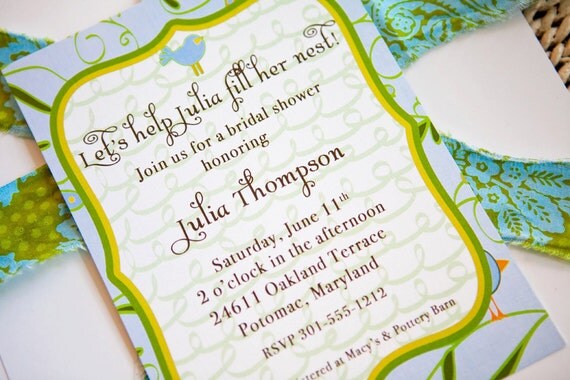 Let's help Julia fill her nest!
Join us for a bridal shower
honoring
Julia Thompson
Saturday, June 11th
2 o'clock in the afternoon
24611 Oakland Terrace
Potomac, Maryland
RSVP 301-555-1212
at Macy's & Pottery Barn